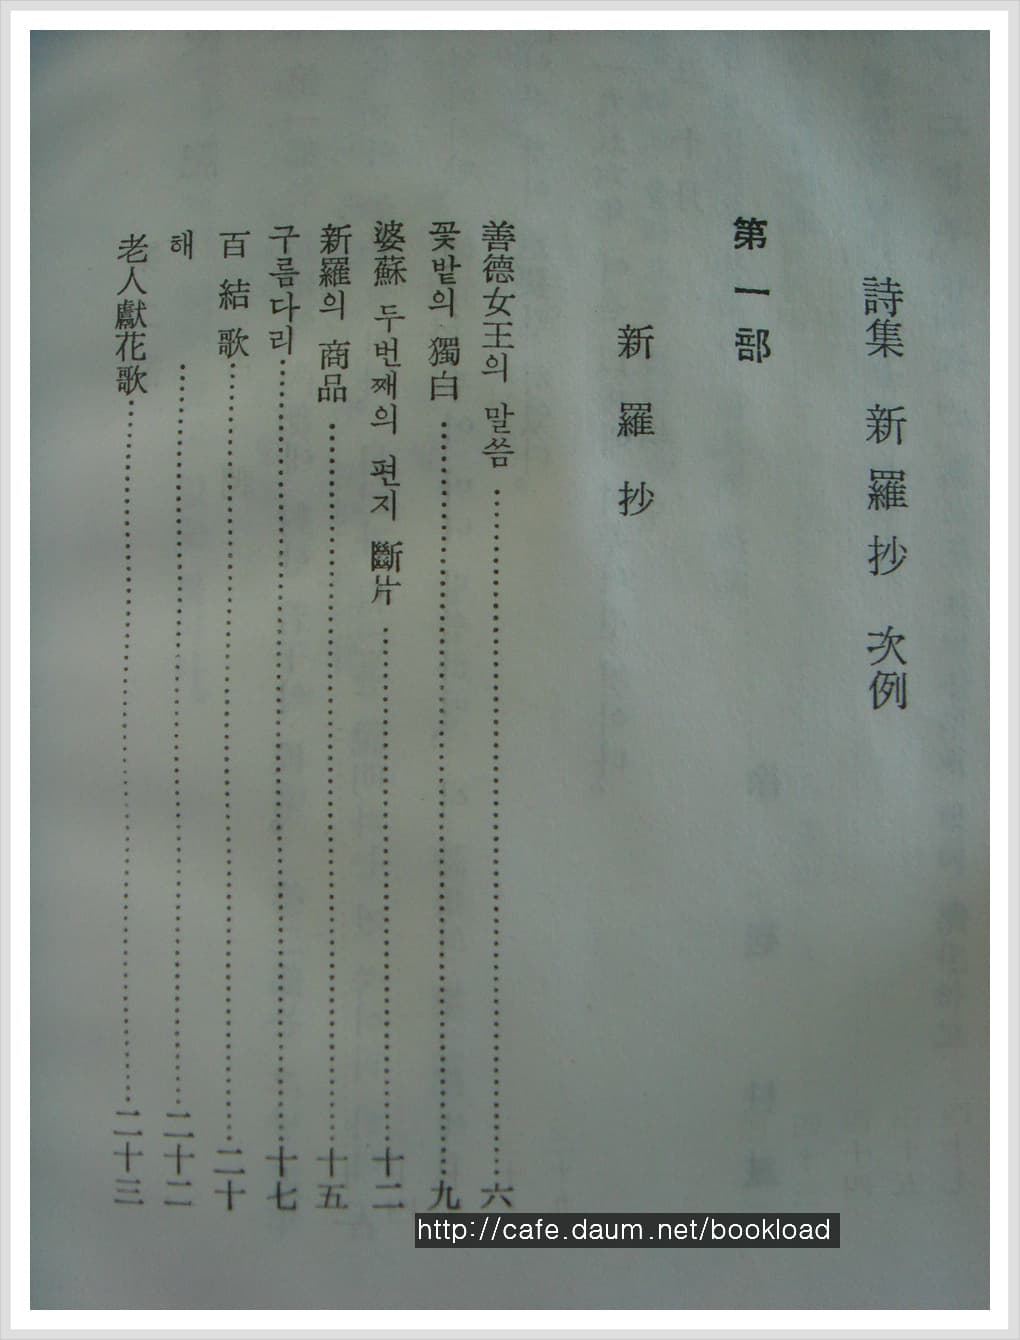 詩集 新羅抄 次例
第一部
新羅抄
善德女王의 말씀 …… 六
꽃밭의 獨白 …… 九
婆蘇 두번째의 편지 斷片 …… 十二
新羅의 商品 …… 十五
구름다리 …… 十七
百結歌 …… 二十
해 …… 二十二
老人獻花歌 …… 二十三
http://cafe.daum.net/bookload